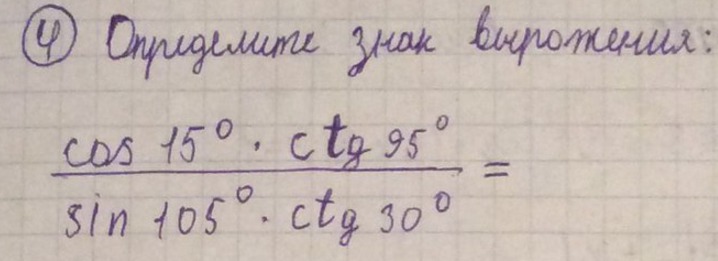 ④ Определите знак выражения:
cos 15° · ctg 95°
sin 105° · ctg 30° =